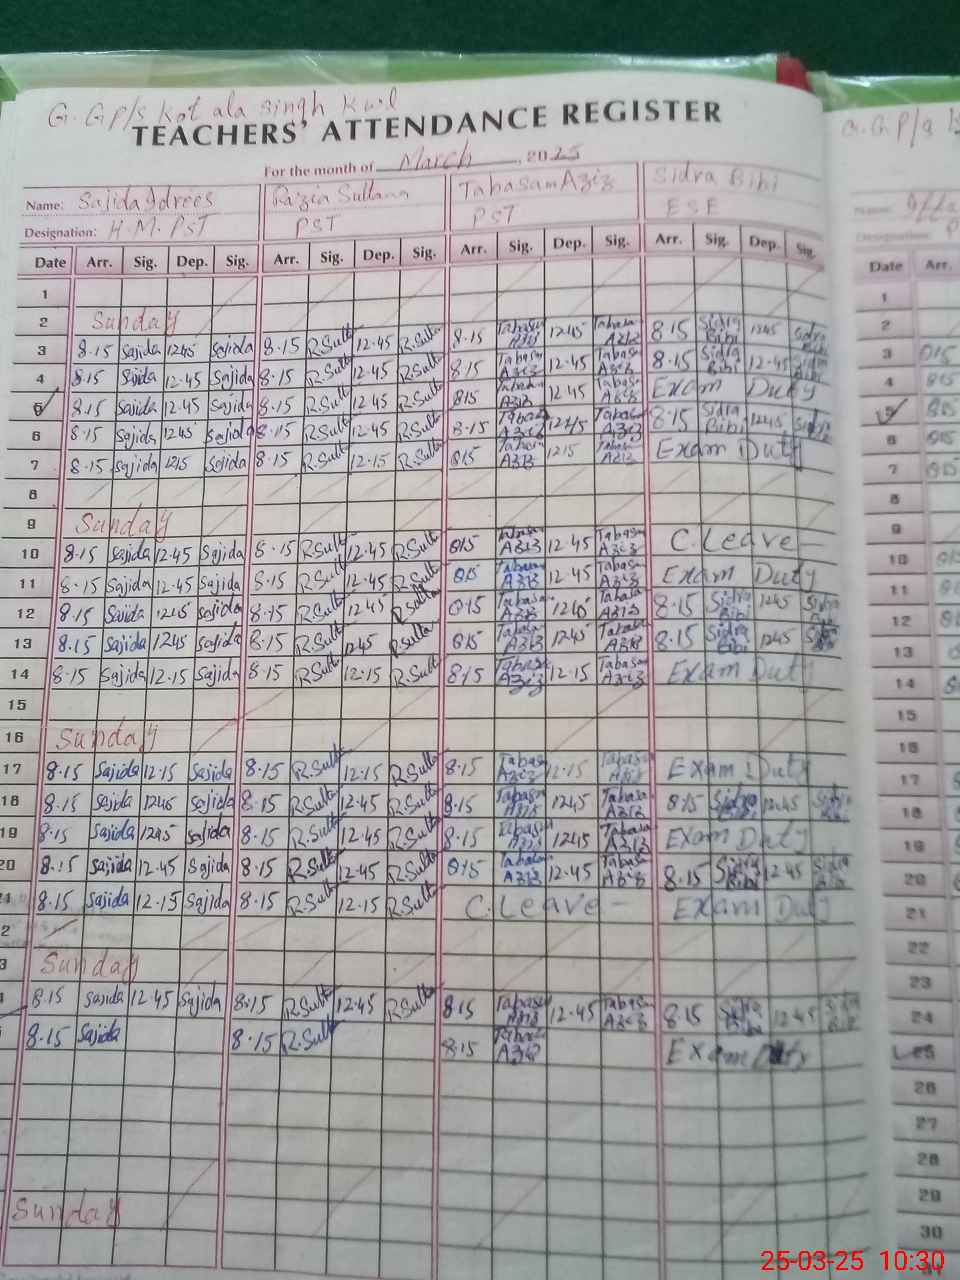 G.G.P/S Kot ala Singh Kwl
TEACHERS' ATTENDANCE REGISTER
For the month of March, 2025
Name: Sajida Idrees Razia Sultana Tabasam Aziz Sidra Bibi
Designation: H.M. PST PST PST ESE
Date Arr. Sig. Dep. Sig. Arr. Sig. Dep. Sig. Arr. Sig. Dep. Sig. Arr. Sig. Dep. Sig.
1
2 Sunday
3 8.15 Sajida 1245 Sajida 8.15 R.Sulta 12.45 R.Sulta 8.15 Tabasam Aziz 1245 Tabasam Aziz 8.15 Sidra Bibi 1245 Sidra Bibi
4 8.15 Sajida 12.45 Sajida 8.15 R.Sulta 12.45 R.Sulta 8.15 Tabasam Aziz 12.45 Tabasam Aziz 8.15 Sidra Bibi 12.45 Sidra Bibi
5 8.15 Sajida 12.45 Sajida 8.15 R.Sulta 12.45 R.Sulta 815 Tabasam Aziz 12.45 Tabasam Aziz Exam Duty
6 8.15 Sajida 1245 Sajida 8.15 R.Sulta 12.45 R.Sulta 8.15 Tabasam Aziz 1245 Tabasam Aziz 8.15 Sidra Bibi 1245 Sidra
7 8.15 Sajida 1215 Sajida 8.15 R.Sulta 12.15 R.Sulta 815 Tabasam Aziz 1215 Tabasam Aziz Exam Duty
8
9 Sunday
10 8.15 Sajida 12.45 Sajida 8.15 R.Sulta 12.45 R.Sulta 815 Tabasam Aziz 12.45 Tabasam Aziz C.Leave -
11 8.15 Sajida 12.45 Sajida 8.15 R.Sulta 12.45 R.Sulta 815 Tabasam Aziz 12.45 Tabasam Aziz Exam Duty
12 8.15 Sajida 1245 Sajida 8.15 R.Sulta 12.45 R.Sulta 815 Tabasam Aziz 1245 Tabasam Aziz 8.15 Sidra Bibi 1245 Sidra Bibi
13 8.15 Sajida 1245 Sajida 8.15 R.Sulta 1245 R.Sulta 815 Tabasam Aziz 1245 Tabasam Aziz 8.15 Sidra Bibi 1245 Sidra Bibi
14 8.15 Sajida 12.15 Sajida 8.15 R.Sulta 12.15 R.Sulta 8.15 Tabasam Aziz 12.15 Tabasam Aziz Exam Duty
15
16 Sunday
17 8.15 Sajida 12.15 Sajida 8.15 R.Sulta 12.15 R.Sulta 8.15 Tabasam Aziz 12.15 Tabasam Aziz Exam Duty
18 8.15 Sajida 1245 Sajida 8.15 R.Sulta 12.45 R.Sulta 8.15 Tabasam Aziz 1245 Tabasam Aziz 8.15 Sidra Bibi 12.45 Sidra Bibi
19 8.15 Sajida 1245 Sajida 8.15 R.Sulta 12.45 R.Sulta 8.15 Tabasam Aziz 1245 Tabasam Aziz Exam Duty
20 8.15 Sajida 12.45 Sajida 8.15 R.Sulta 12.45 R.Sulta 815 Tabasam Aziz 12.45 Tabasam Aziz 8.15 Sidra Bibi 12.45 Sidra Bibi
8.15 Sajida 12.15 Sajida 8.15 R.Sulta 12.15 R.Sulta C.Leave - Exam Duty
2
3 Sunday
8.15 Sajida 12.45 Sajida 8.15 R.Sulta 12.45 R.Sulta 8.15 Tabasam Aziz 12.45 Tabasam Aziz 8.15 Sidra Bibi 12.45 Sidra Bibi
8.15 Sajida 8.15 R.Sulta 8.15 Tabasam Aziz Exam Duty
Sunday
G.G P/S
Date Arr.
1
2
3 815
4 815
5 815
6 815
7 815
8
9
10
11
12
13
14
15
16
17
18
19
20
21
22
23
24
25
26
27
28
29
30
31
25-03-25 10:30